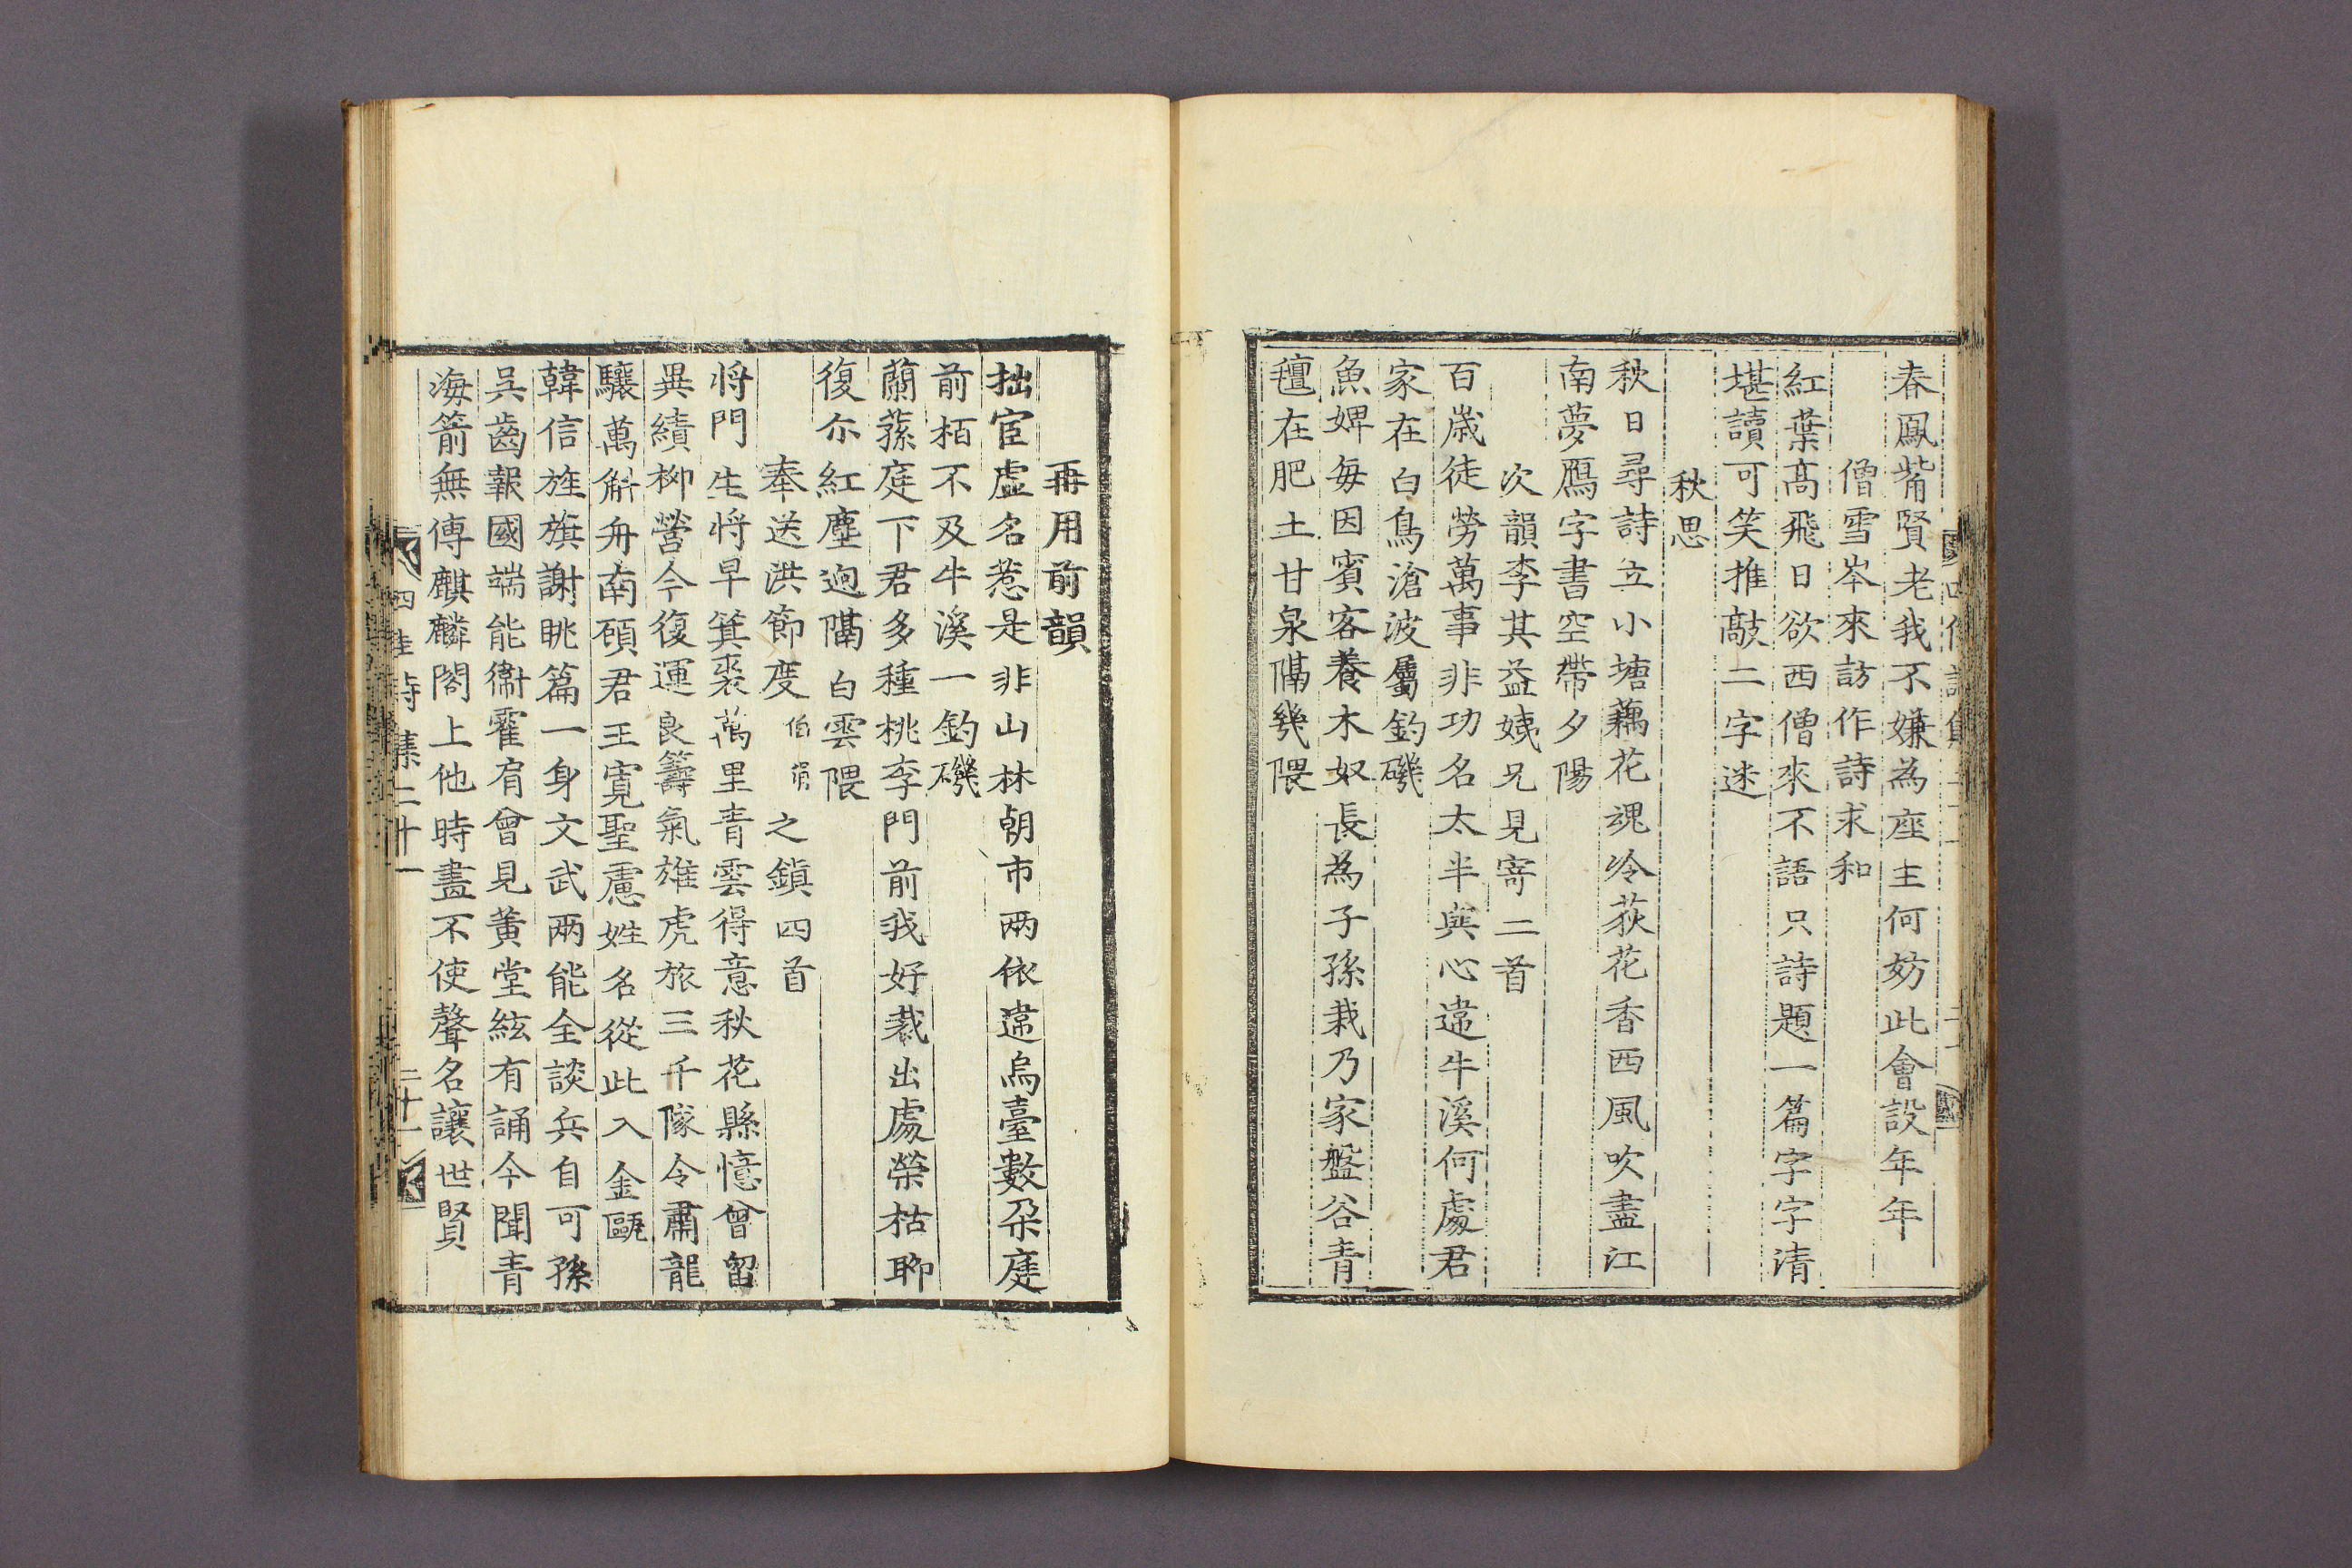 春鳳觜賢老我不嫌為座主何妨此會設年年
僧雪岑來訪作詩求和
紅葉髙飛日欲西僧來不語只詩題一篇字字清
堪讀可笑推敲二字迷
秋思
秋日尋詩立小塘藕花魂冷荻花香西風吹盡江
南夢鴈字書空帶夕陽
次韻李其益姨兄見寄二首
百歲徒勞萬事非功名太半與心違牛溪何處君
家在白鳥滄波屬釣磯
魚婢每因賓客養木奴長為子孫栽乃家盤谷青
氊在肥土甘泉隔幾隈
再用前韻
拙宦虛名惹是非山林朝市两依違烏臺數朶庭
前栢不及牛溪一釣磯
蘭蓀庭下君多種桃李門前我好裁出處榮枯聊
復尒紅塵逈隔白雲隈
奉送洪節度伯涓之鎮四首
将門生将早箕裘萬里青雲得意秋花縣憶曾留
異績柳營今復運良籌氣雄虎旅三千隊令肅龍
驤萬斛舟南碩君王寬聖慮姓名從此入金甌
韓信旌旗謝眺篇一身文武兩能全談兵自可孫
吳齒報國端能衞霍肩曾見黃堂絃有誦今聞青
海箭無傳麒麟閣上他時畫不使聲名讓世賢
四佳詩集二十一 二十一